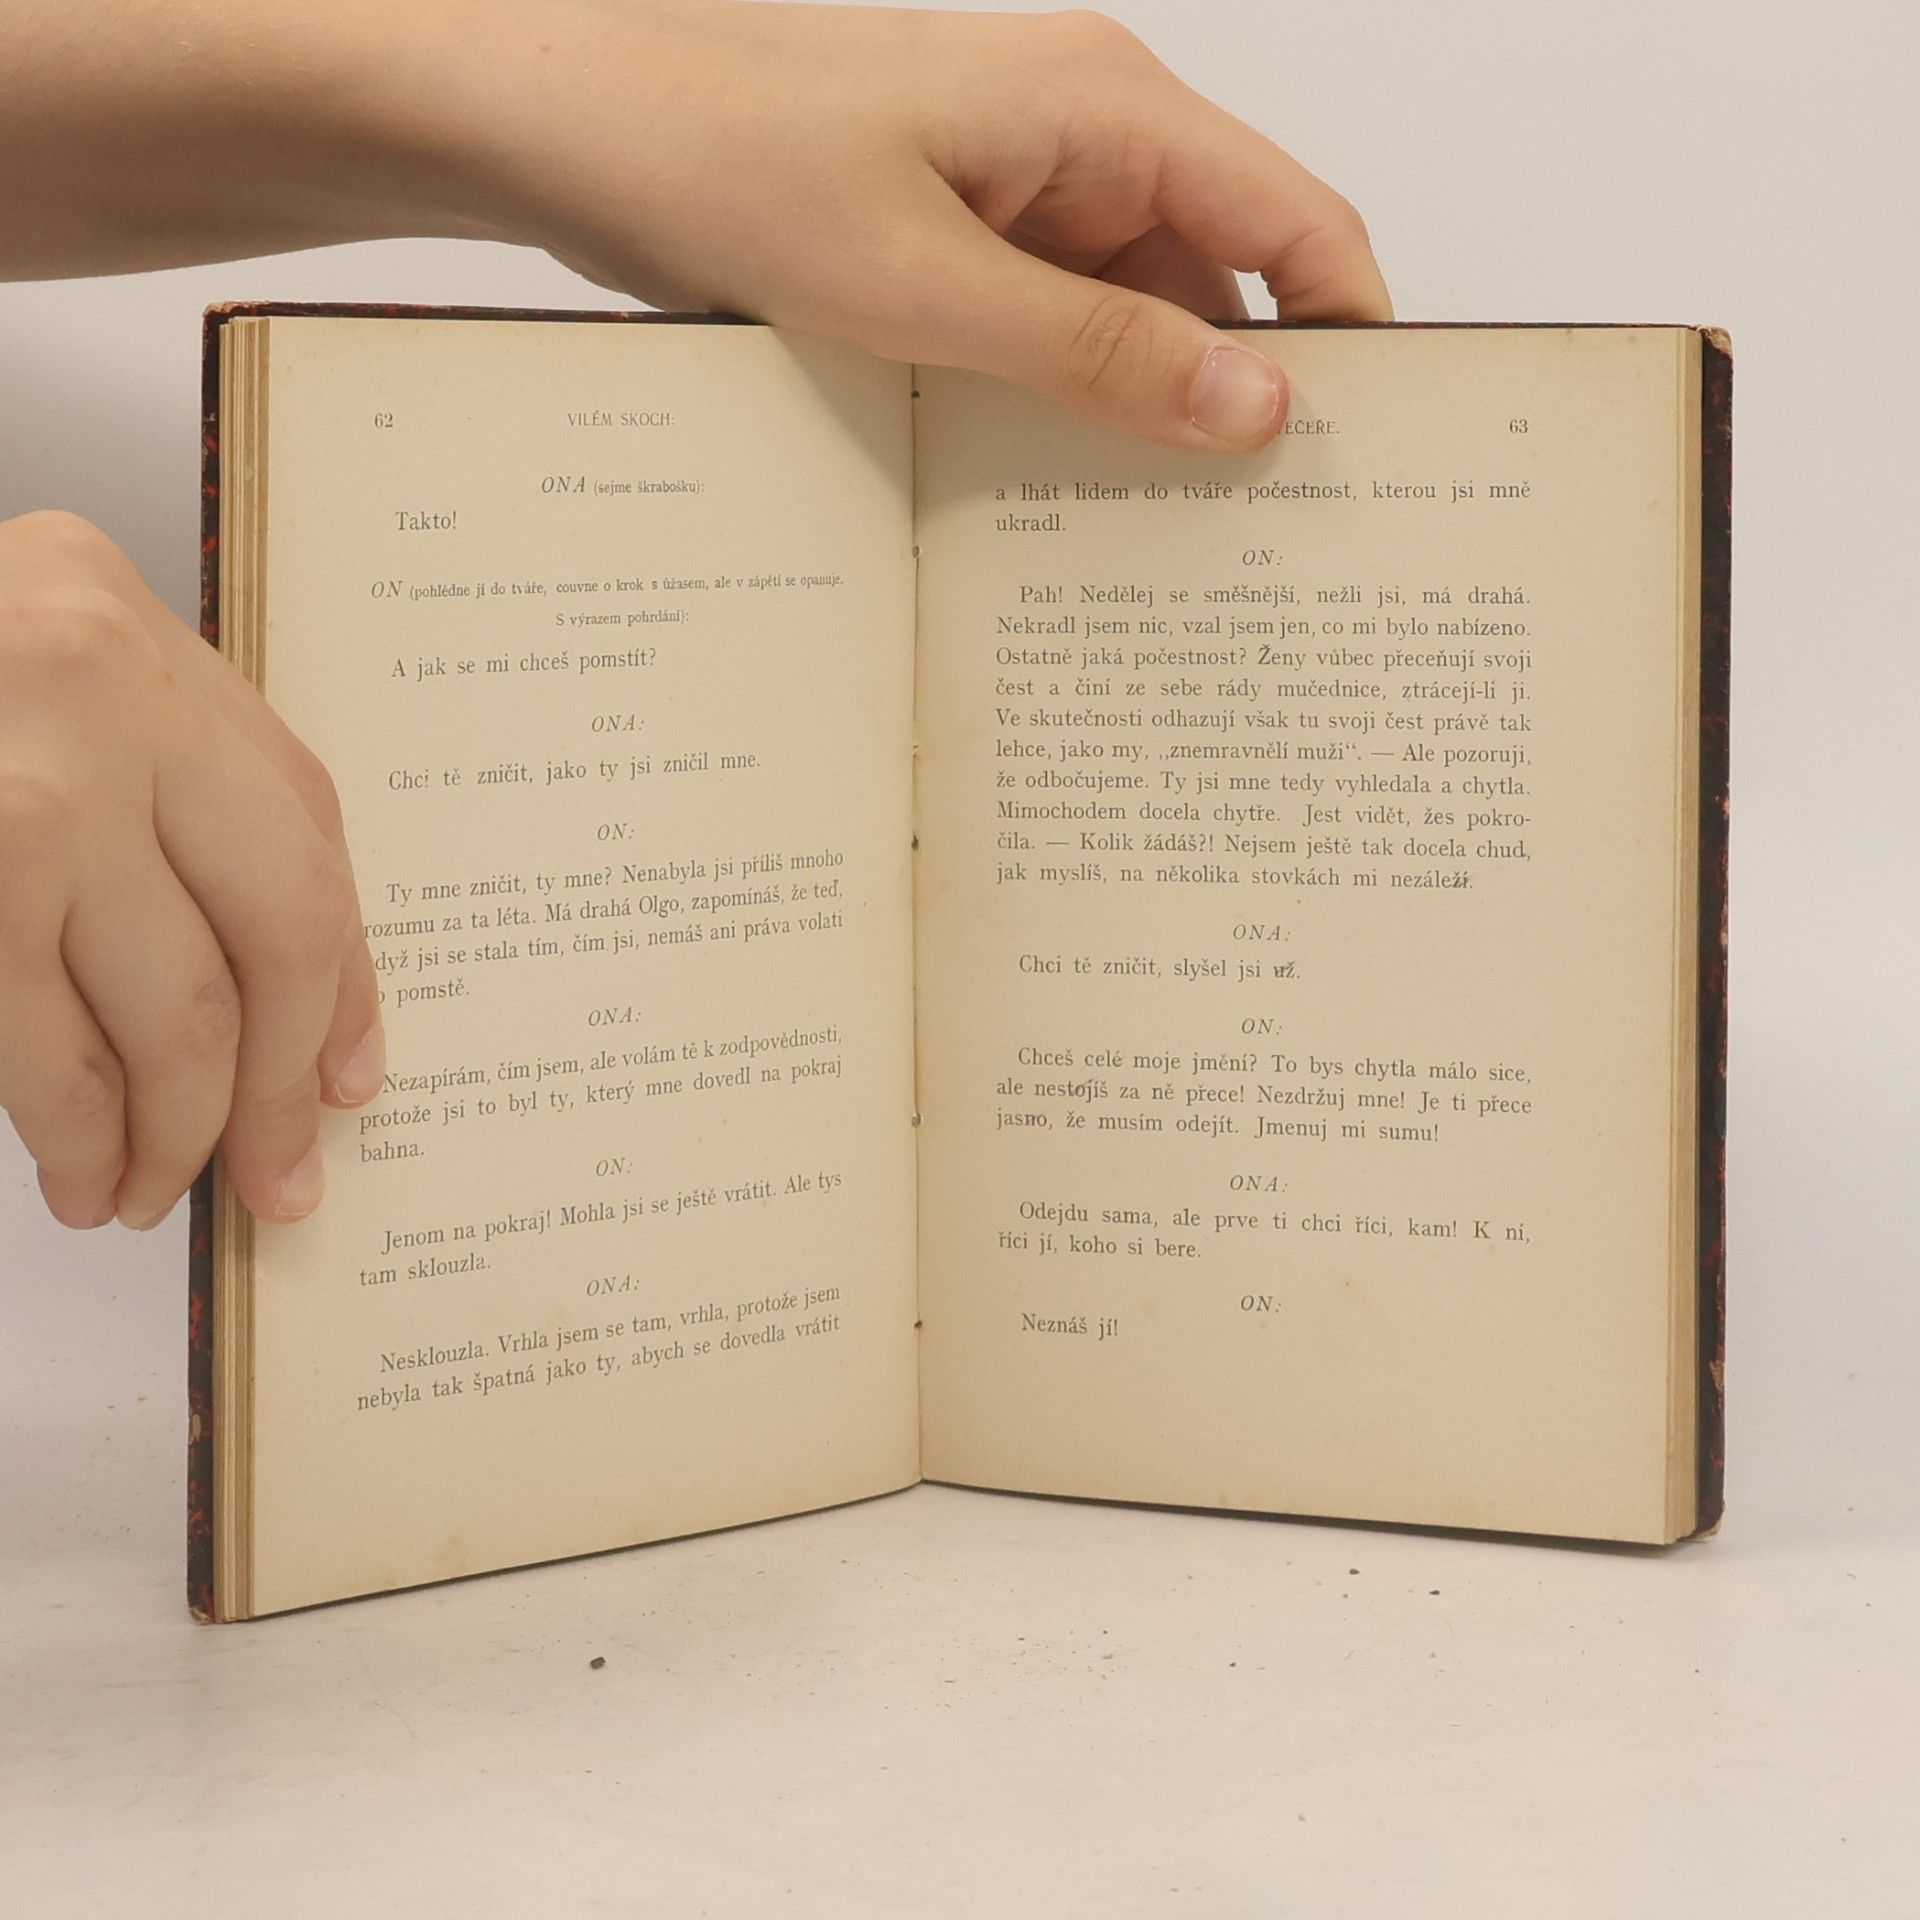 62 VILÉM SKOCH:
ONA (sejme škrabošku):
Takto!
ON (pohlédne jí do tváře, couvne o krok s úžasem, ale v zápětí se opanuje.
S výrazem pohrdání):
A jak se mi chceš pomstít?
ONA:
Chci tě zničit, jako ty jsi zničil mne.
ON:
Ty mne zničit, ty mne? Nenabyla jsi příliš mnoho
rozumu za ta léta. Má drahá Olgo, zapomínáš, že teď,
dyž jsi se stala tím, čím jsi, nemáš ani práva volati
pomstě.
ONA:
Nezapírám, čím jsem, ale volám tě k zodpovědnosti,
protože jsi to byl ty, který mne dovedl na pokraj
bahna.
ON:
Jenom na pokraj! Mohla jsi se ještě vrátit. Ale tys
tam sklouzla.
ONA:
Nesklouzla. Vrhla jsem se tam, vrhla, protože jsem
nebyla tak špatná jako ty, abych se dovedla vrátit
EČEŘE. 63
a lhát lidem do tváře počestnost, kterou jsi mně
ukradl.
ON:
Pah! Nedělej se směšnější, nežli jsi, má drahá.
Nekradl jsem nic, vzal jsem jen, co mi bylo nabízeno.
Ostatně jaká počestnost? Ženy vůbec přeceňují svoji
čest a činí ze sebe rády mučednice, ztrácejí-li ji.
Ve skutečnosti odhazují však tu svoji čest právě tak
lehce, jako my, „znemravnělí muži“. — Ale pozoruji,
že odbočujeme. Ty jsi mne tedy vyhledala a chytla.
Mimochodem docela chytře. Jest vidět, žes pokro-
čila. — Kolik žádáš?! Nejsem ještě tak docela chud,
jak myslíš, na několika stovkách mi nezáleží.
ONA:
Chci tě zničit, slyšel jsi už.
ON:
Chceš celé moje jmění? To bys chytla málo sice,
ale nestojíš za ně přece! Nezdržuj mne! Je ti přece
jasno, že musím odejít. Jmenuj mi sumu!
ONA:
Odejdu sama, ale prve ti chci říci, kam! K ní,
říci jí, koho si bere.
ON:
Neznáš jí!